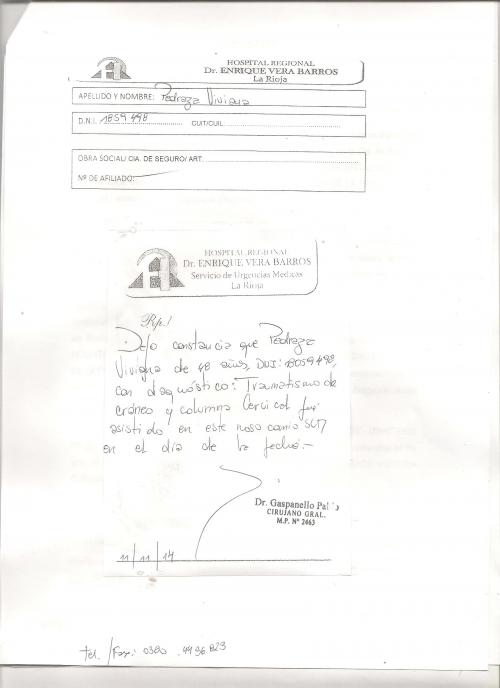 HOSPITAL REGIONAL
Dr. ENRIQUE VERA BARROS
La Rioja
APELLIDO Y NOMBRE: Pedraza Viviana
D.N.I. 1859498 CUIT/CUIL:
OBRA SOCIAL/ CIA. DE SEGURO/ ART.
Nº DE AFILIADO:
HOSPITAL REGIONAL
Dr. ENRIQUE VERA BARROS
Servicio de Urgencias Medicas
La Rioja
Rp.!
Dejo constancia que Pedraza
Viviana de 48 años, DNI: 18059498,
con diagnóstico: Traumatismo de
cráneo y columna Cervical fué
asistido en este nosocomio
en el día de la fecha.-
Dr. Gaspanello Pablo
CIRUJANO GRAL.
M.P. Nº 2463
11/11/14
tel. /Fax: 0380 .4496.823